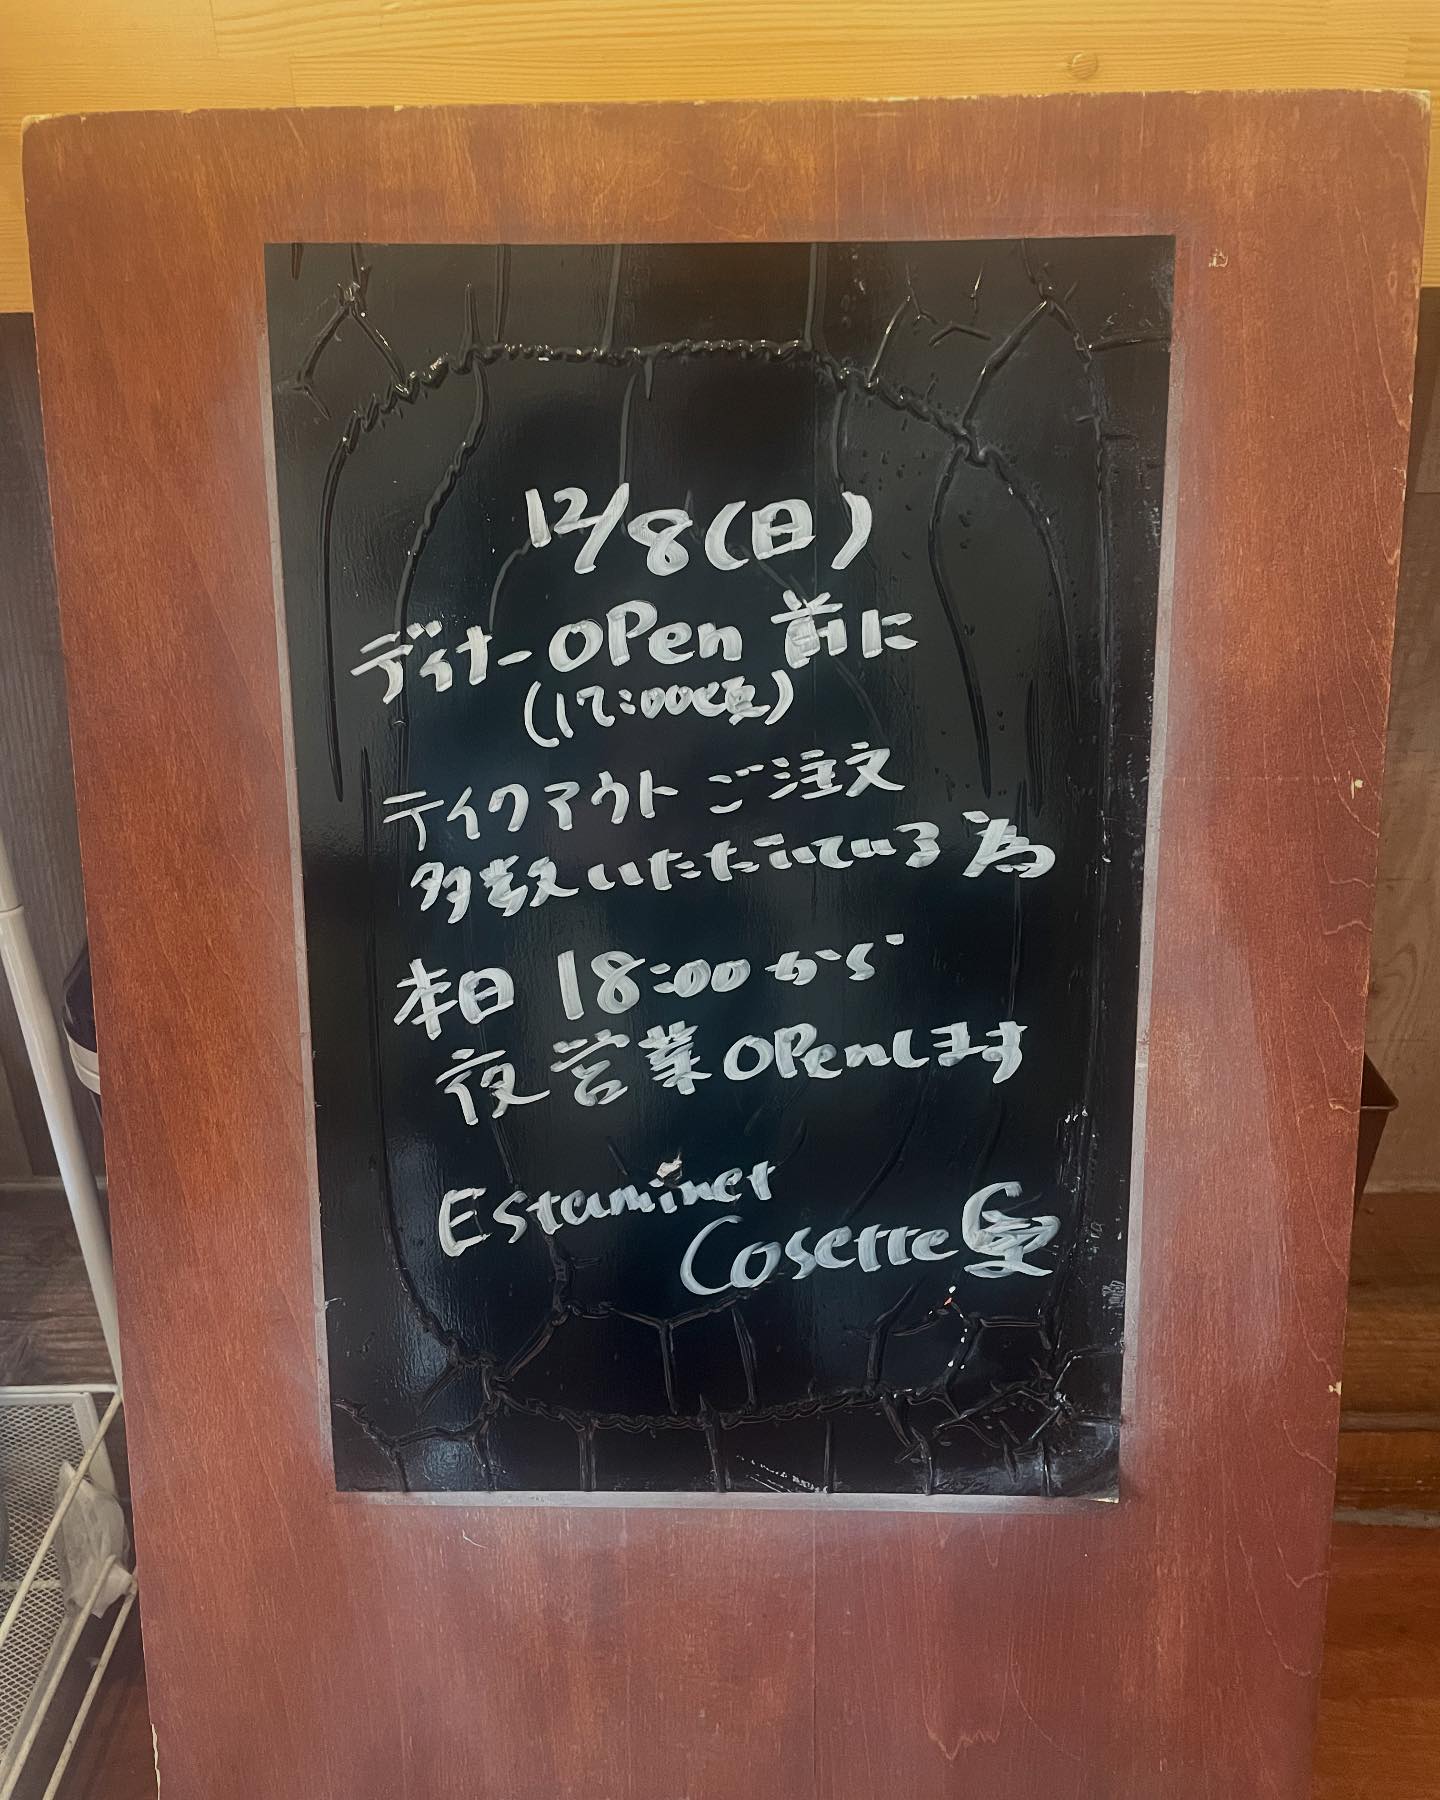 12/8(日)
ディナーOPen 前に
(17:00頃)
テイクアウト ご注文
多数いただいている為
本日 18:00から
夜営業OPenします
Estaminet
Cosette